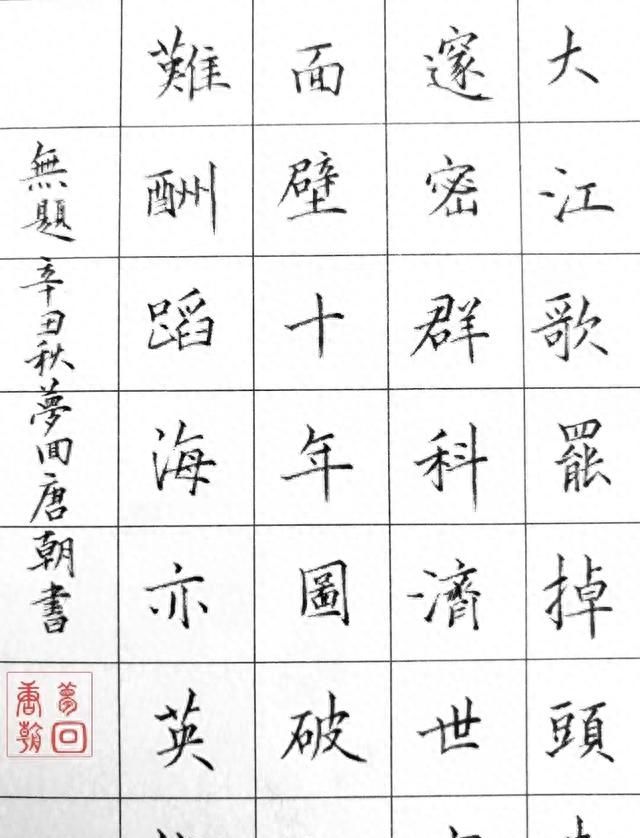 大江歌罷掉頭
邃密群科濟世
面壁十年圖破
難酬蹈海亦英
無題 辛丑秋夢回唐朝書
夢回唐朝